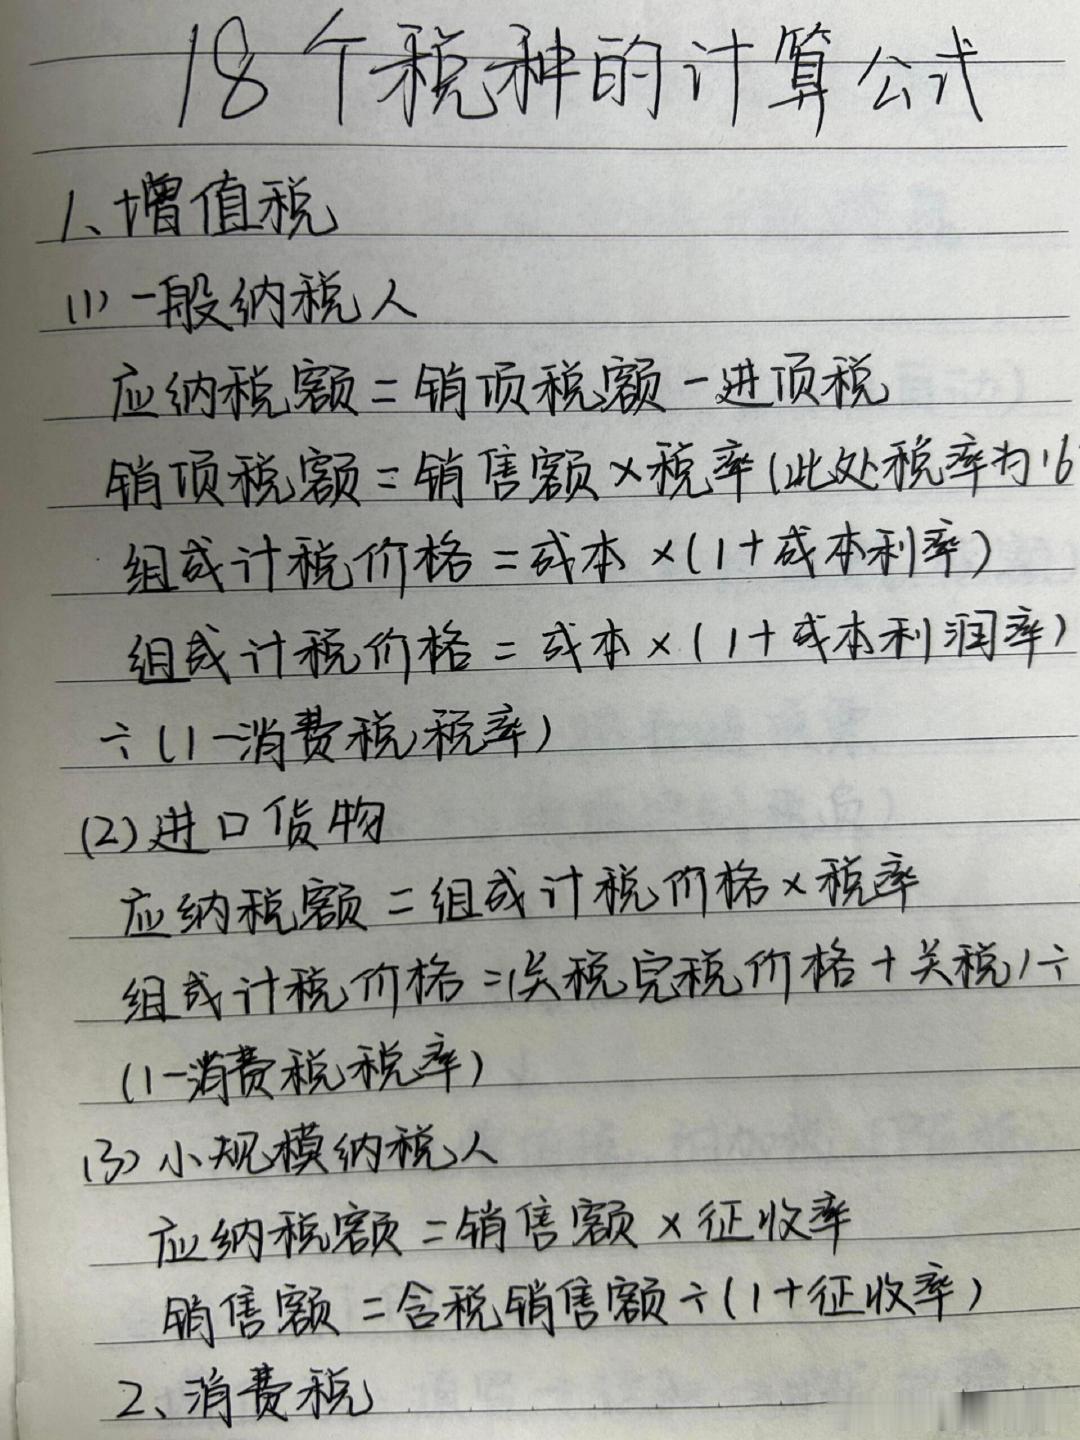 18个税种的计算公式
1、增值税
(1)一般纳税人
应纳税额=销项税额-进项税
销项税额=销售额×税率(此处税率为16
组成计税价格=成本×(1+成本利率)
组成计税价格=成本×(1+成本利润率)
÷(1-消费税税率)
(2)进口货物
应纳税额=组成计税价格×税率
组成计税价格=(关税完税价格+关税)÷
(1-消费税税率)
(3)小规模纳税人
应纳税额=销售额×征收率
销售额=含税销售额÷(1+征收率)
2、消费税